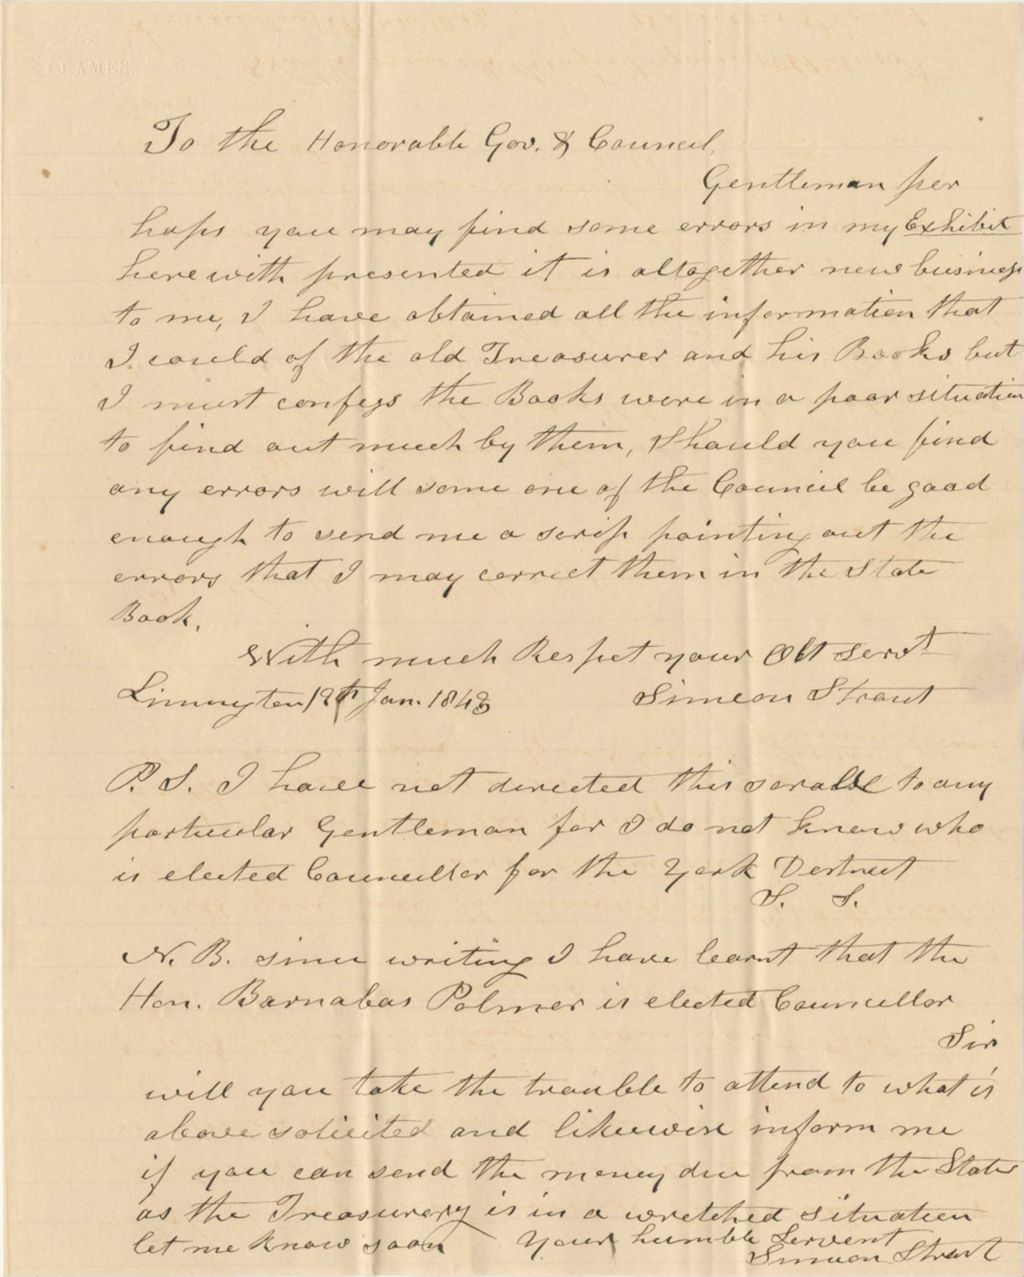 To the Honorable Gov. & Council,
Gentleman per
haps you may find some errors in my Exhibit
herewith presented it is altogether new business
to me, I have obtained all the information that
I could of the old Treasurer and his Books but
I must confess the Books were in a poor situation
to find out much by them, Should you find
any errors will some one of the Council be good
enough to send me a scrip pointing out the
errors that I may correct them in the State
Book.
With much Respet your Obt servt
Limington 12th Jan. 1843
Simeon Strout
P. S. I have not directed this to any
particular Gentleman for I do not know who
is elected Councellor for the York Destrict
S. S.
N. B. since writing I have learnt that the
Hon. Barnabas Palmer is elected Councellor
Sir
will you take the trouble to attend to what is
above solicited and likewise inform me
if you can send the money due from the State
as the Treasurery is in a wretched situation
let me know soon Your humble Servent
Simeon Strout